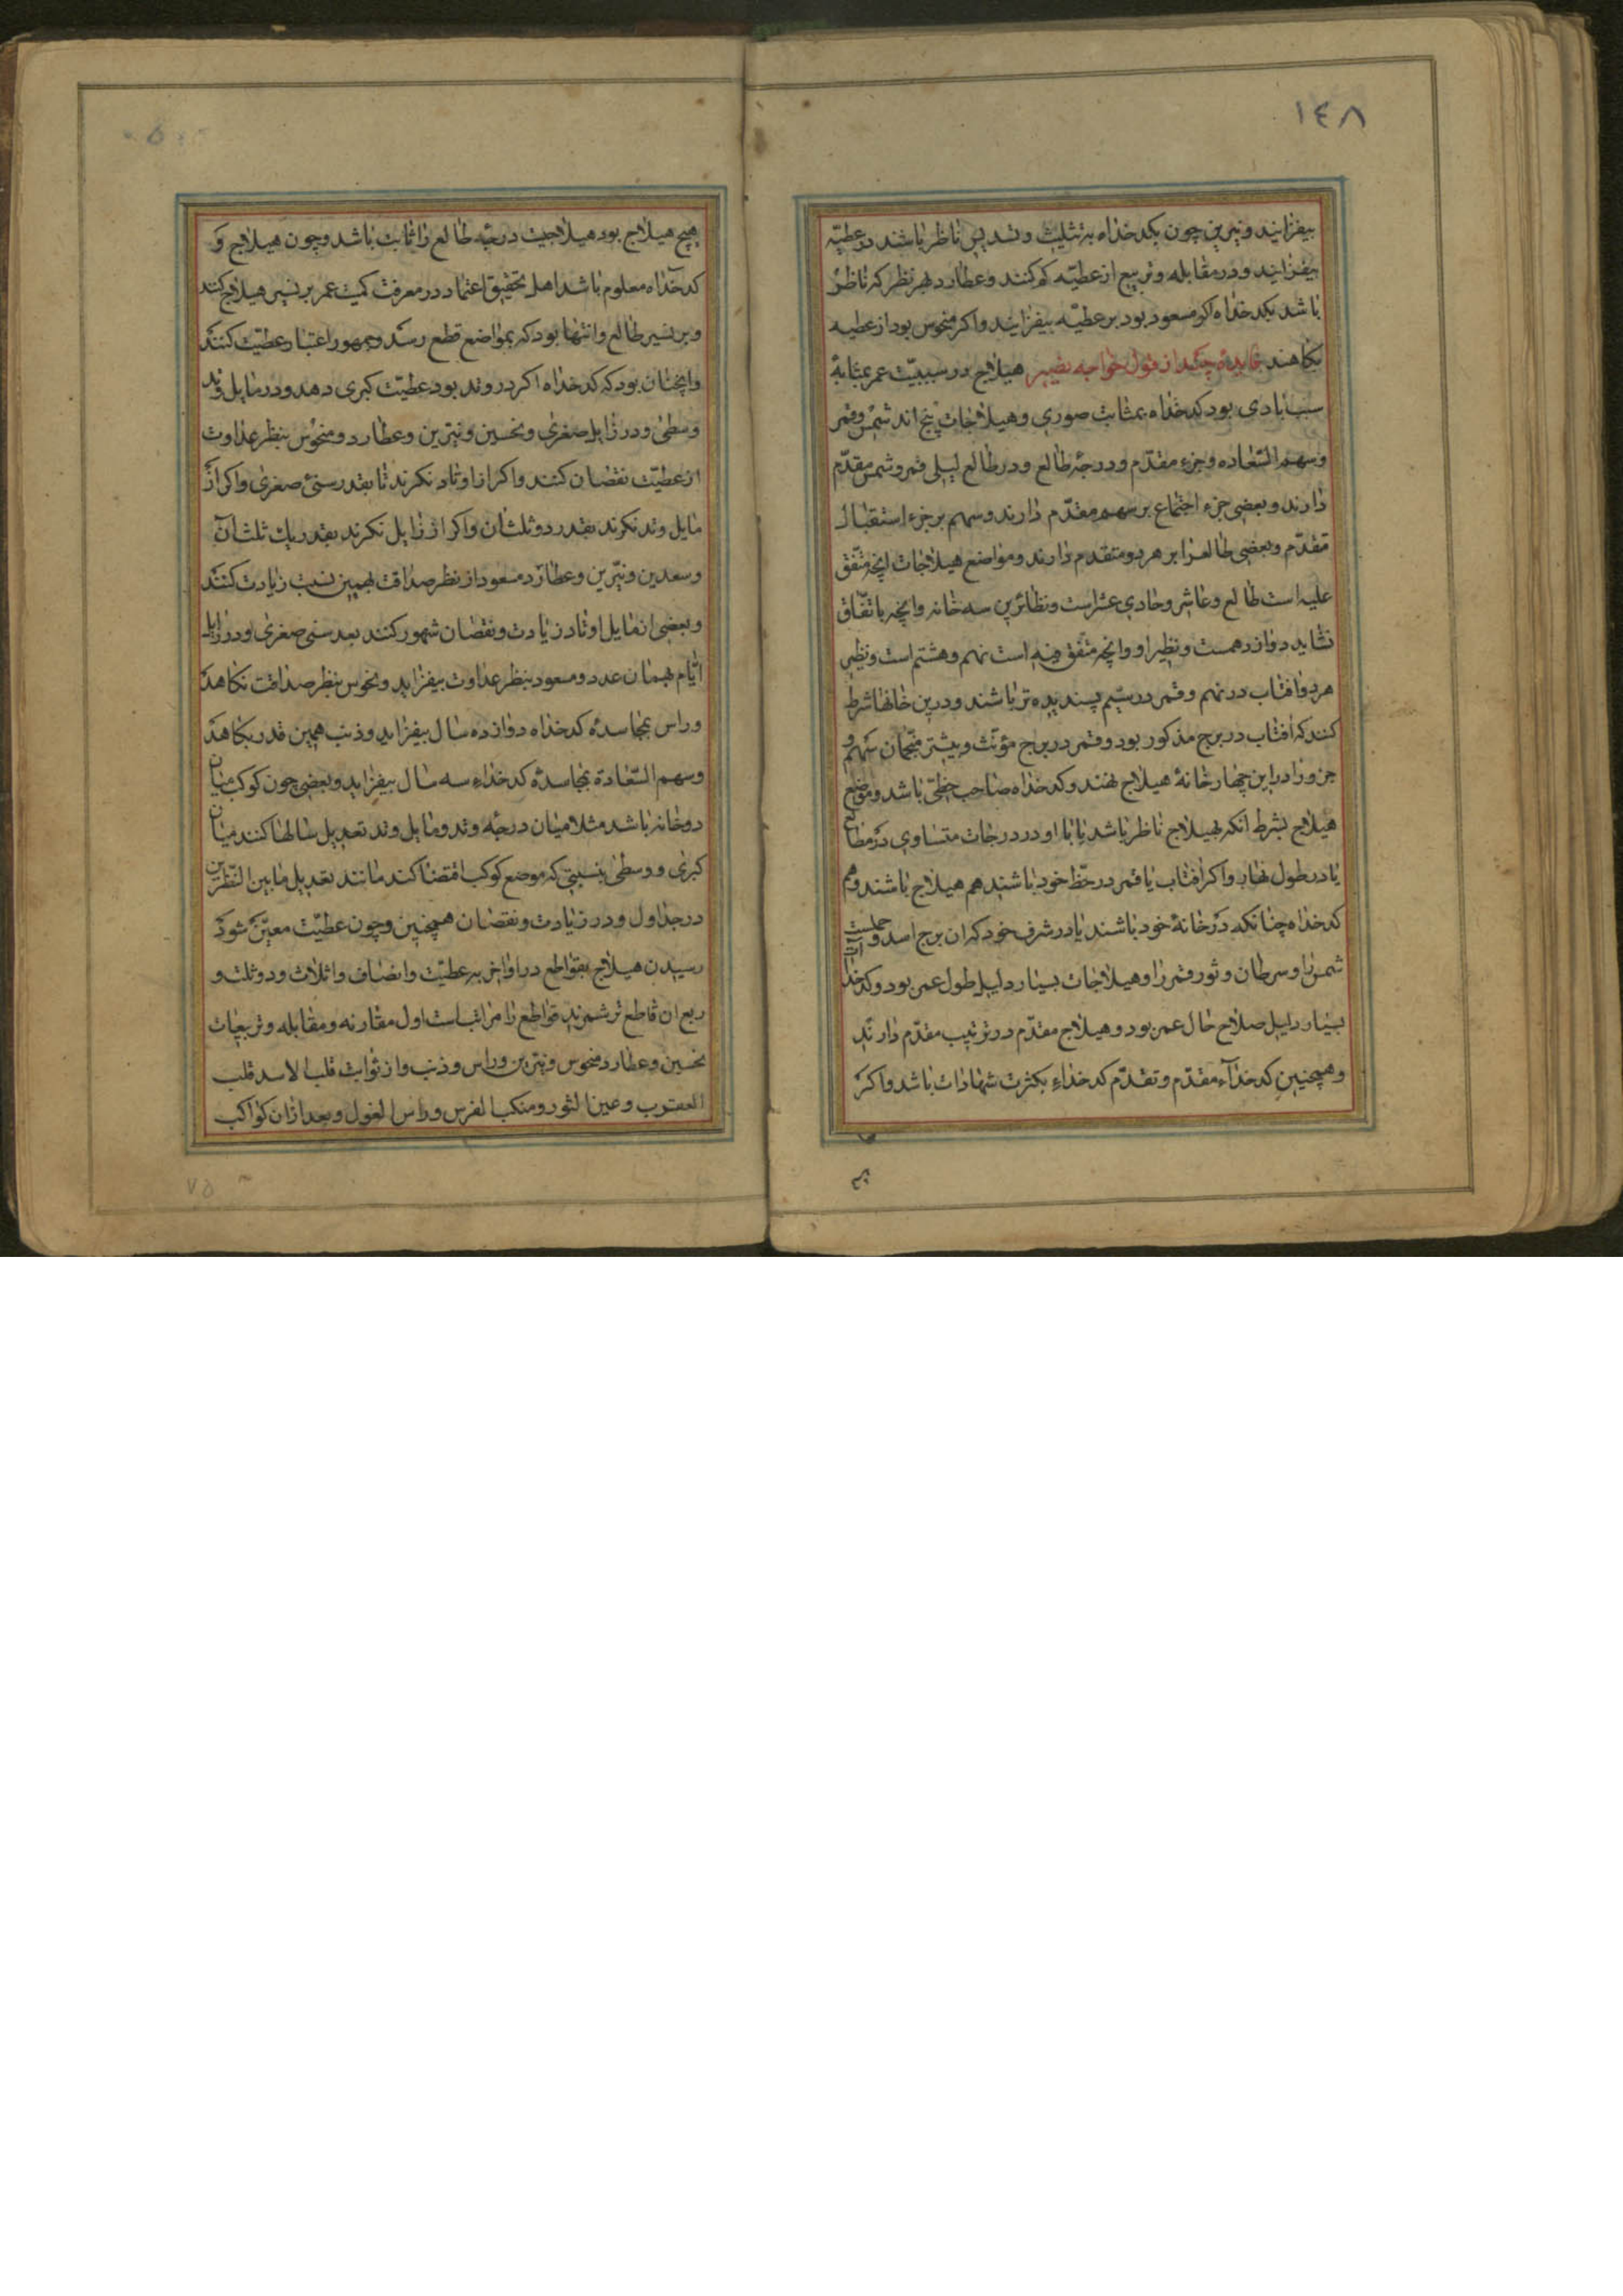 ١٤٨
بیفزایند و نیرین چون بکدخداه بتثلیث و تسدیس ناظر باشند در عطیّه
بیفزایند و در مقابله و تربیع از عطیّه کم کنند و عطارد بهر نظر که ناظر
باشد بکدخداه اکر مسعود بود بر عطیّه بیفزایند و اکر منحوس بود از عطیه
بکاهند فایده چند از قول خواجه نصیر هیلاج در سببیّت عمر بمثابهٔ
سبب بادی بود کدخداه بمثابت صوری و هیلاجات پنج اند شمس و قمر
و سهم السّعاده و جزء مقدّم و درجهٔ طالع و در طالع لیلی قمر و شمس مقدّم
دارند و بعضی جزء اجتماع بر سهم مقدّم دارند و سهم بر جزء استقبال
مقدّم و بعضی طالع را بر هر دو متقدم دارند و مواضع هیلاجات انچه متّفق
علیه است طالع و عاشر و حادی عشر است و نظائر این سه خانه و انچه باتفّاق
نشاید دوازدهمست و نظیر او و انچه متّفق فیه است نهم و هشتم است و نظیر
هر دو افتاب در نهم و قمر در سیّم پسندیده تر باشند و درین خانها شرط
کنند که افتاب در برج مذکور بود و قمر در برج مؤنّث و بیشتر منجّمان سهم و
جزو را درین چهار خانهٔ هیلاج نهند و کدخداه صاحب حظّی باشد و موضع
هیلاج بشرط آنکه بهیلاج ناظر باشد یا با او در درجات متساوی در مطالع
یا در طول نهار و اکر افتاب یا قمر در حظّ خود باشند هم هیلاج باشند و هم
کدخداه چنانکه در خانهٔ خود باشند یا در شرف خود که ان برج اسد و حملست
شمس را و سرطان و ثور قمر را و هیلاجات بسیار دلیل طول عمر بود و کدخدا
بسیار دلیل صلاح حال عمر بود و هیلاج مقدّم در ترتیب مقدّم دارند
و همچنین کدخداء مقدّم و تقدّم کدخداء بکثرت شهادات باشد و اکر
هیچ هیلاج بود هیلاجیت درجهٔ طالع را ثابت باشد و چون هیلاج و
کدخداه معلوم باشد اهل تحقیق اعتماد در معرفت کمیت عمر بر تسییر هیلاج کنند
و بر تسییر طالع و انتها بود که بمواضع قطع رسد و جمهور اعتبار عطیّت کنند
و انچنان بود که کدخداه اکر در وتد بود عطیّت کبری دهد و در مایل وتد
وسطی و در زایل صغری و نحسین و نیّرین و عطارد و منحوس بنظر عداوت
از عطیّت نقصان کنند و اکر از اوتاد نکرند تا بقدر سنیّ صغری و اکر از
مایل وتد نکرند بقدر دو ثلث ان و اکر از زایل نکرند بقدر یک ثلث ان
و سعدین و نیّرین و عطارد مسعود از نظر صداقت بهمین نسبت زیادت کنند
و بعضی از مایل اوتاد زیادت و نقصان شهور کنند بعدد سنی صغری و در زایل
ایّام همان عدد و مسعود بنظر عداوت بیفزاید و نحوس بنظر صداقت نکاهد
و راس بمجاسدهٔ کدخداه دوازده سال بیفزاید و ذنب همین قدر بکاهد
و سهم السّعادة بمجاسدهٔ کدخداء سه سال بیفزاید و بعضی چون کوکب میان
دو خانه باشد مثلا میان درجهٔ وتد و مایل وتد تعدیل سالها کنند میان
کبری و وسطی بنسبتی که موضع کوکب اقتضا کند مانند تعدیل ما بین السّطرین
در جداول و در زیادت و نقصان همچنین و چون عطیّت معیّن شود
رسیدن هیلاج بقواطع در اواخر عطیّت و انصاف و اثلاث و دو ثلث و
ربع ان قاطع تر شمرند قواطع را مراتب است اول مقارنه و مقابله و تربیعات
نحسین و عطارد منحوس و نیّرین و راس و ذنب و از ثوابت قلب الاسد قلب
العقرب و عین الثور و منکب الفرس و راس الغول و بعد از ان کواکب
٧٥